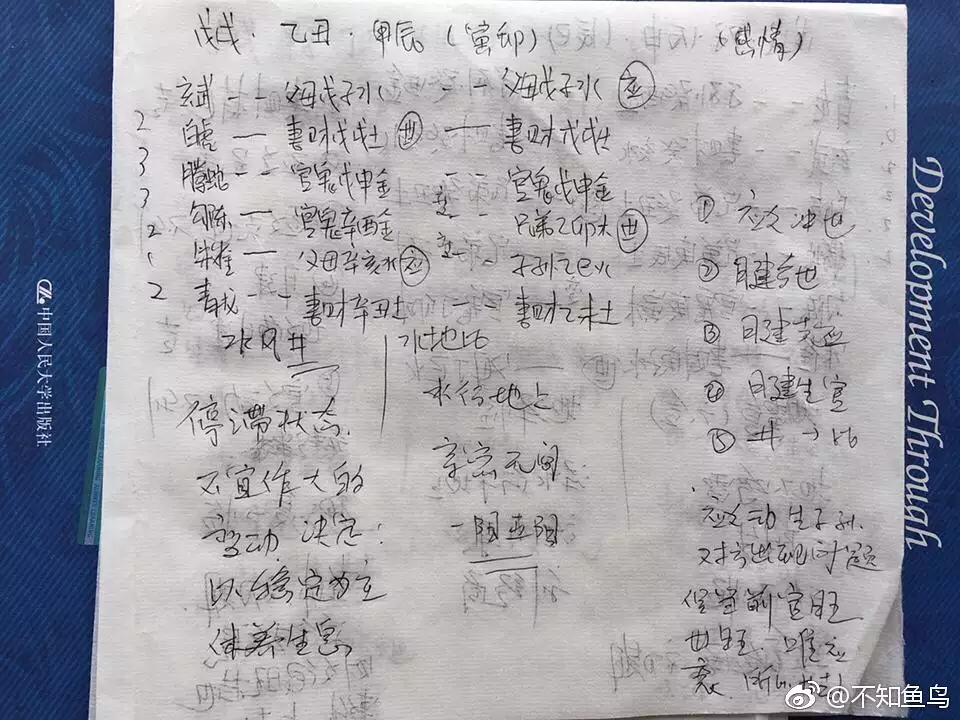 戊戌·乙丑·甲辰（寅卯） （感情）
玄武 -- 父母戊子水 -- 父母戊子水 应
2 白虎 — 妻财戊戌土 世 — 妻财戊戌土
3 腾蛇 -- 官鬼戊申金 -- 官鬼戊申金
3 勾陈 — 官鬼辛酉金 -- 兄弟乙卯木 世
2 朱雀 — 父母辛亥水 应 -- 子孙乙巳火
2 青龙 -- 妻财辛丑土 -- 妻财乙未土
水风井
水地比
停滞状态
不宜作大的
变动 决定：
以稳定为主
休养生息
水行地上
亲密无间
一阳五阴
① 应爻冲世
② 日建合世
③ 日建克应
④ 日建生官
⑤ 井→比
应爻动生子孙
对方出现问题
官旺
世旺 唯应
衰
Development Through
中国人民大学出版社
@不知鱼鸟